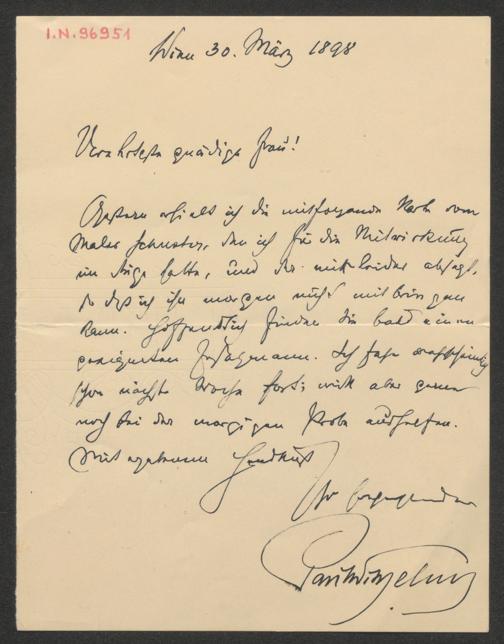 I.N.96951
Wien 30. März 1898
Verehrteste gnädige Frau!
Gestern erhielt ich die mitfolgende Karte vom
Maler Schuster, den ich für die Mitwirkung
im Auge hatte, und der mir leider absagt,
so daß ich ihn morgen nicht mitbringen
kann. Hoffentlich finden Sie bald einen
geeigneten Ersatzmann. Ich fahre wahrscheinlich
schon nächste Woche fort; will aber gerne
noch bei der morgigen Probe aushelfen.
Mit ergebenem Handkuß
Ihr
Paul